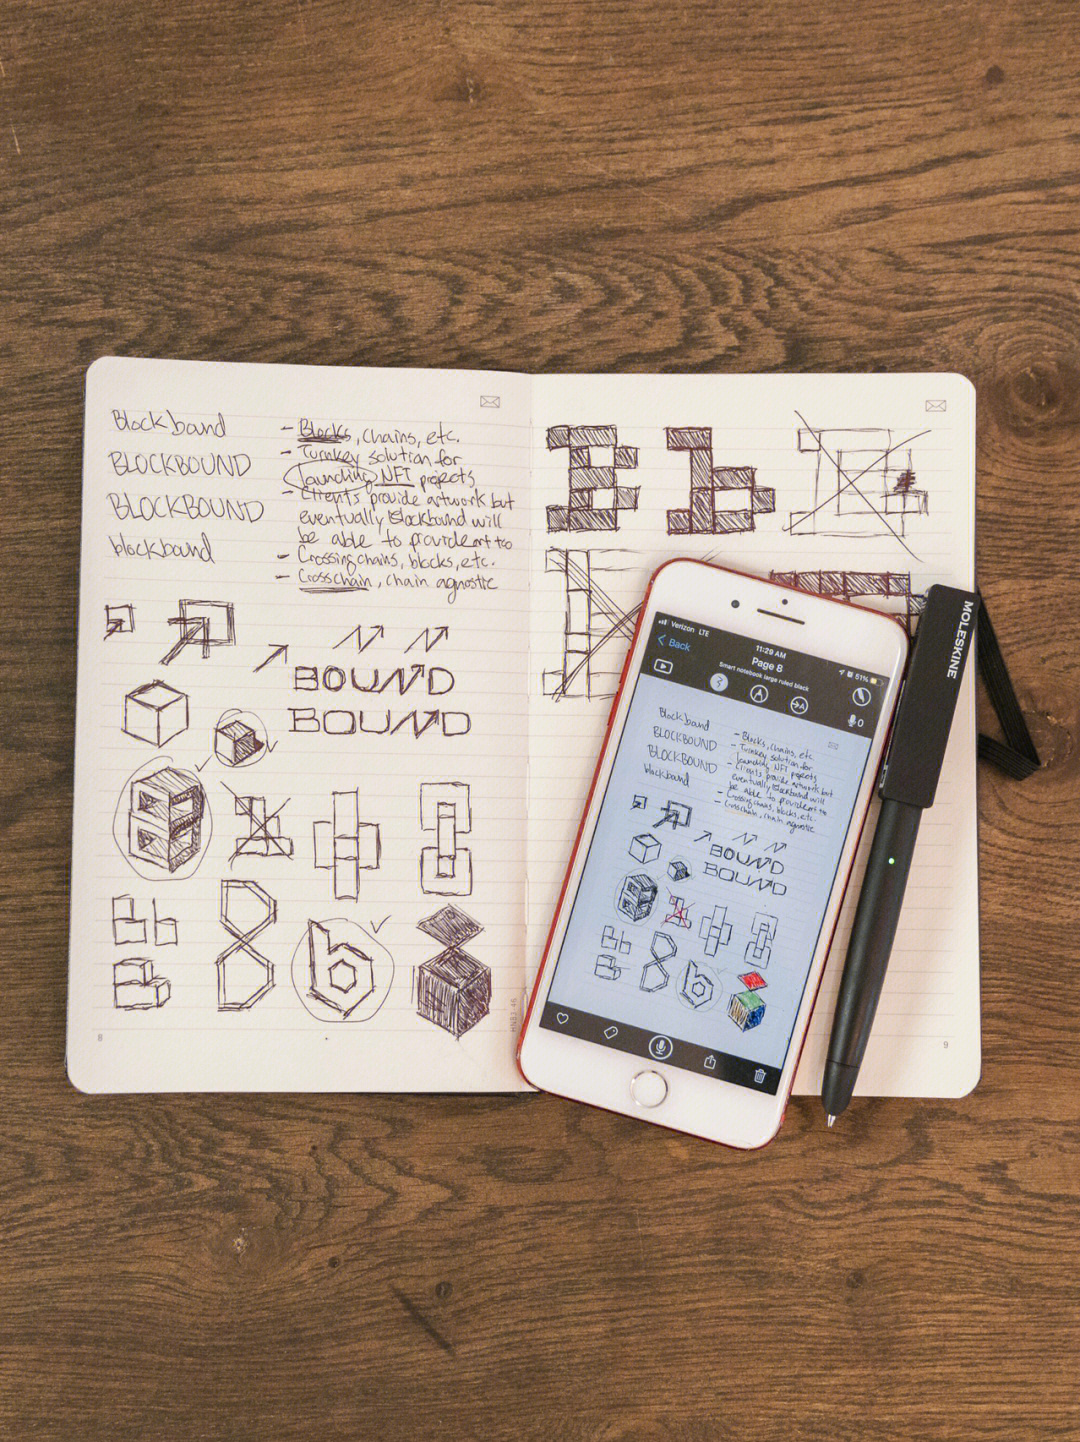 Blockbound
BLOCKBOUND
BLOCKBOUND
blockbound
- Blocks, chains, etc.
- Turnkey solution for
launching NFT projects
- Clients provide artwork but
eventually Blockbound will
be able to provide art too
- Crossing chains, blocks, etc.
- Crosschain, chain agnostic
BOUND
BOUND
Bb
B
8
b
8
B
b
9
MOLESKINE
Verizon LTE
11:29 AM
51%
Back
Page 8
Smart notebook large ruled black
0
Blockbound
BLOCKBOUND
BLOCKBOUND
blockbound
- Blocks, chains, etc.
- Turnkey solution for
launching NFT projects
- Clients provide artwork but
eventually Blockbound will
be able to provide art too
- Crossing chains, blocks, etc.
- Crosschain, chain agnostic
BOUND
BOUND
Bb
B
8
b